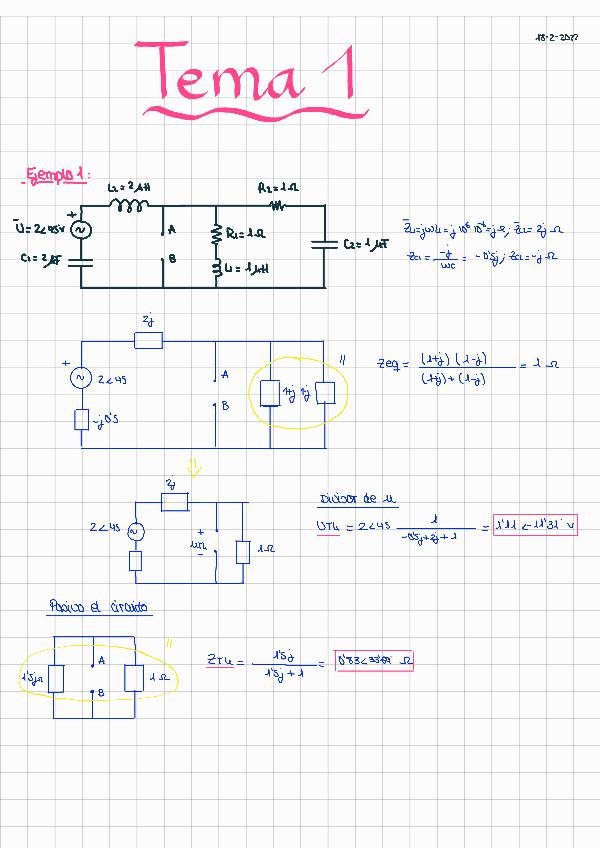 18-2-2022
Tema 1
Ejemplo 1:
L2 = 2 μH
R2 = 1 Ω
+
Ū = 2∠45 V
A
R1 = 1 Ω
C2 = 1 μF
C1 = 2 μF
B
L1 = 1 μH
Z̄L1 = jωL1 = j 10⁶ 10⁻⁶ = jΩ; Z̄L2 = 2j Ω
ZC1 = -j/ωC = -0'5j; ZC2 = -j Ω
2j
+
2∠45
A
B
-j0'5
1+j
1-j
//
Zeq = (1+j)(1-j) / (1+j)+(1-j) = 1 Ω
2j
2∠45
+
UTh
-
1 Ω
Divisor de U
UTh = 2∠45 1 / -0'5j+2j+1 = 1'11∠-11'31 V
Pasivo el circuito
//
1'5jΩ
A
B
1 Ω
ZTh = 1'5j / 1'5j+1 = 0'83∠33'69 Ω